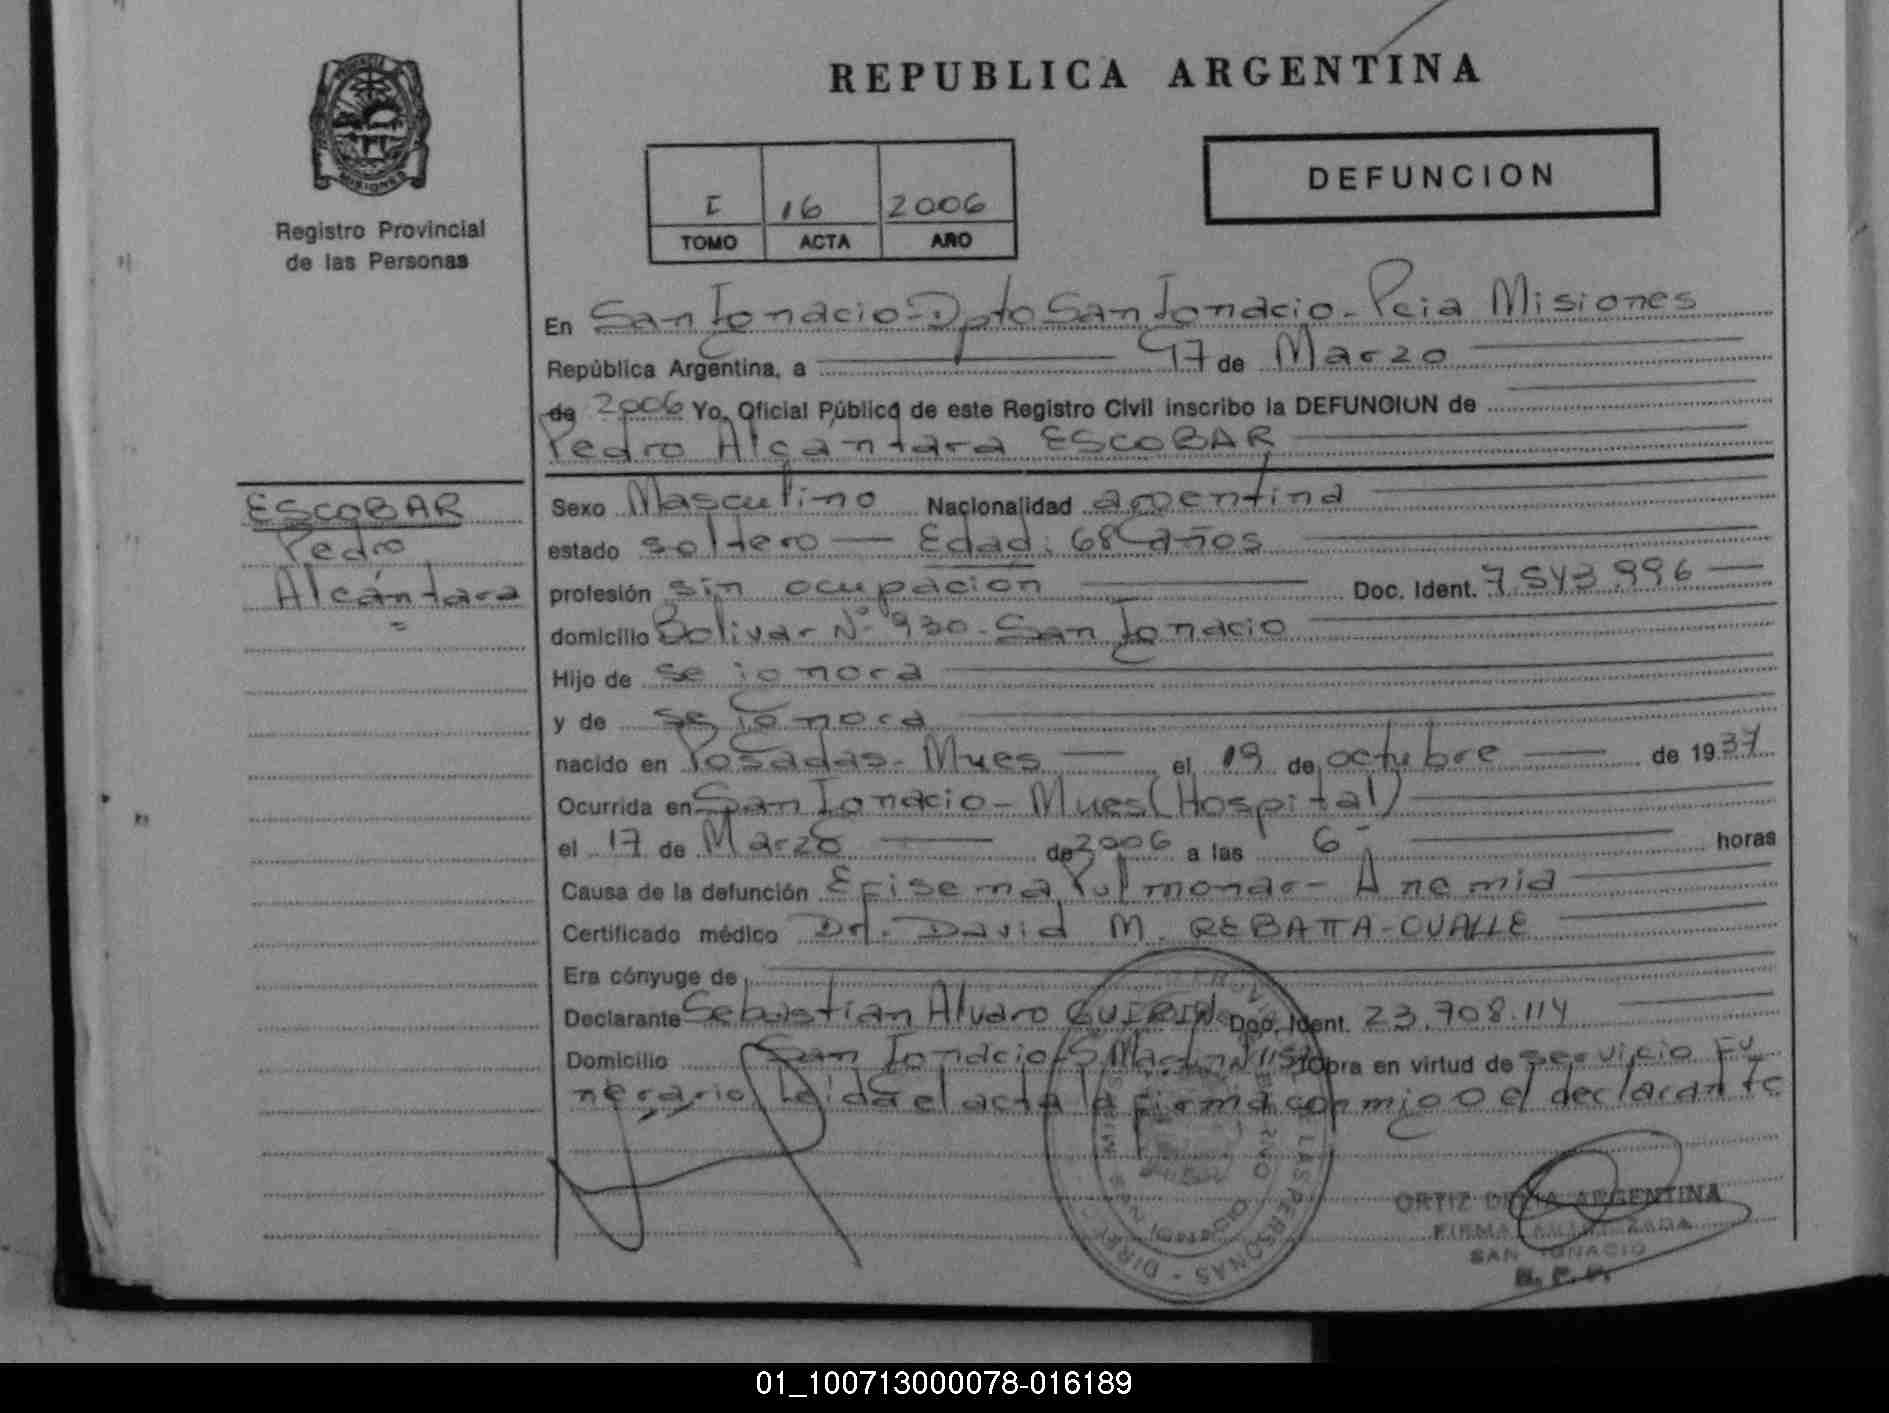 REPUBLICA ARGENTINA
PROVINCIA DE
MISIONES
Registro Provincial
de las Personas
I 16 2006
TOMO ACTA AÑO
DEFUNCION
En San Ignacio-Dpto San Ignacio-Pcia Misiones
República Argentina, a 17 de Marzo
de 2006 Yo, Oficial Público de este Registro Civil inscribo la DEFUNCION de
Pedro Alcántara ESCOBAR
ESCOBAR
Pedro
Alcántara
Sexo Masculino Nacionalidad argentina
estado soltero Edad: 68 años
profesión sin ocupación Doc. Ident. 7.543.996
domicilio Bolivar Nº 930-San Ignacio
Hijo de se ignora
y de se ignora
nacido en Posadas-Mnes el 19 de octubre de 1937
Ocurrida en San Ignacio-Mnes (Hospital)
el 17 de Marzo de 2006 a las 6 horas
Causa de la defunción Efisema Pulmonar-Anemia
Certificado médico Dr. David M. REBATTA-OVALLE
Era cónyuge de
Declarante Sebastian Alvaro Doc. Ident. 23.708.114
Domicilio San Ignacio-S. Martin Obra en virtud de servicio Fu
nerario. Leída el acta la firma conmigo el declarante
DE LAS PERSONAS - DIREC
ORTIZ DELIA ARGENTINA
FIRMA AUTORIZADA
SAN IGNACIO
R. P. P.
01_100713000078-016189